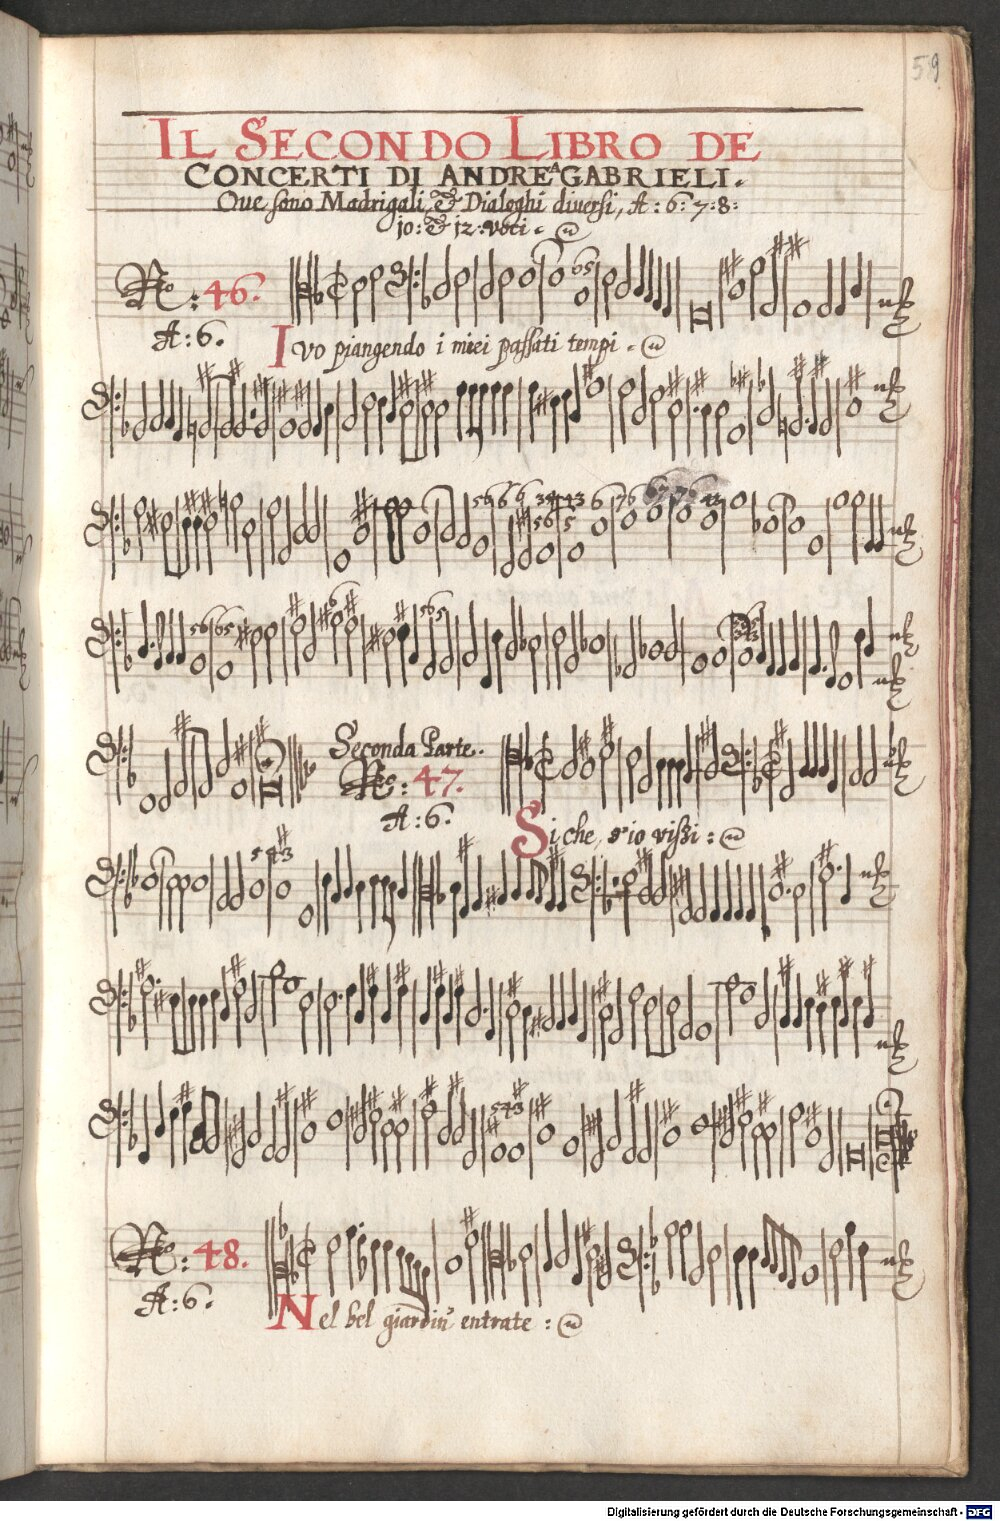 59
IL SECONDO LIBRO DE
CONCERTI DI ANDREA GABRIELI.
Oue sono Madrigali, & Dialoghi diuersi, A: 6: 7: 8:
10: & 12: voti.
No: 46.
A: 6.
I vo piangendo i miei passati tempi.
Seconda Parte.
No: 47.
A: 6.
Si che, s'io vissi:
No: 48.
A: 6.
Nel bel giardin entrate:
Digitalisierung gefördert durch die Deutsche Forschungsgemeinschaft - DFG